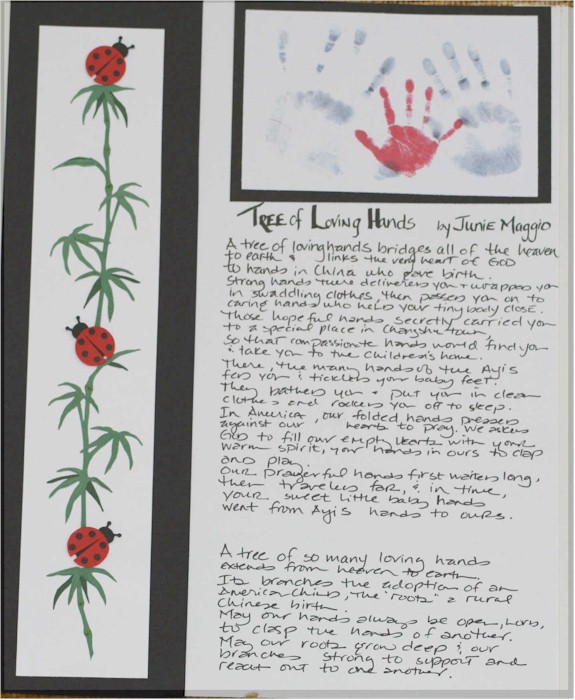 TREE of Loving Hands by Junie Maggio
A tree of loving hands bridges all of the heaven
to earth & links the very heart of GOD
to hands in China who gave birth.
Strong hands there delivered you & wrapped you
in swaddling clothes, then passed you on to
caring hands who held your tiny body close.
Those hopeful hands secretly carried you
to a special place in Changshe town,
so that compassionate hands would find you
& take you to the children's home.
There, the many hands of the Ayis
fed you & tickled your baby feet.
They bathed you & put you in clean
clothes and rocked you off to sleep.
In America, our folded hands pressed
against our hearts to pray. We asked
God to fill our empty hearts with your
warm spirit, your hands in ours to clap
and play.
Our prayerful hands first waited long,
then traveled far, & in time,
your sweet little baby hands
went from Ayis hands to ours.
A tree of so many loving hands
extends from heaven to earth.
Its branches the adoption of an
America child, the "roots" a rural
Chinese birth.
May our hands always be open, Lord,
to clasp the hands of another.
May our roots grow deep & our
branches strong to support and
reach out to one another.